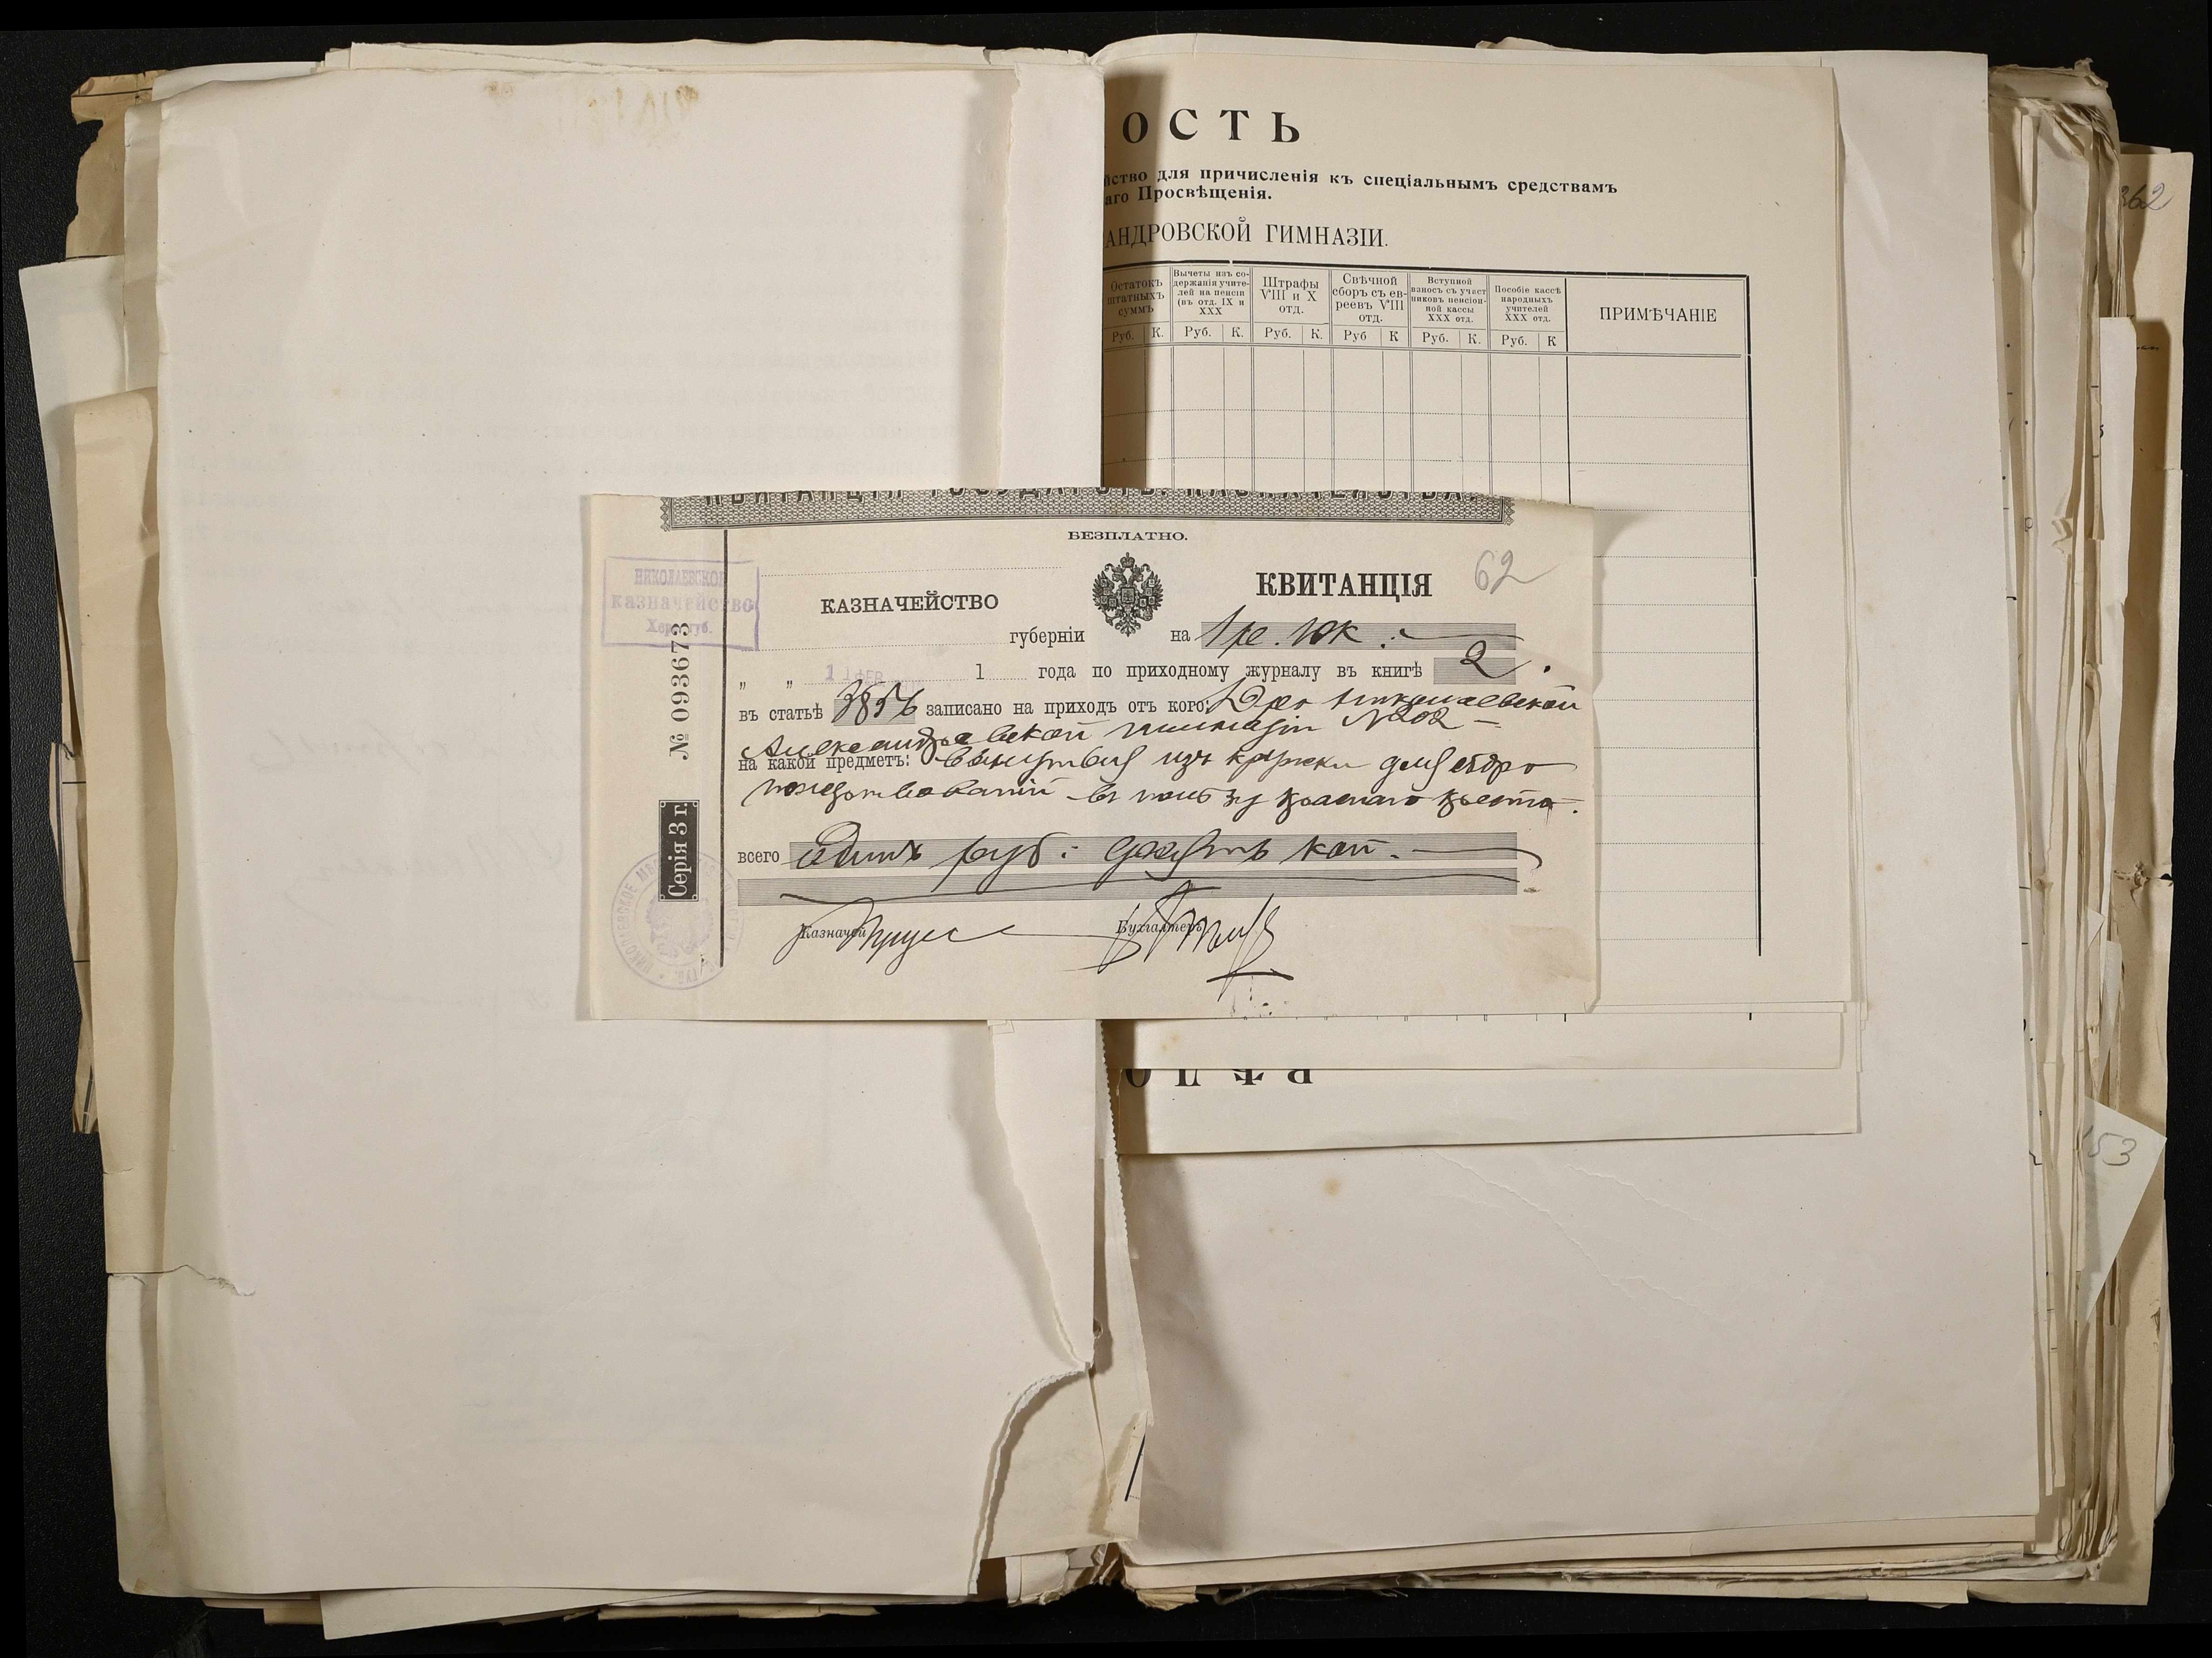 ОСТЬ
для причисленія къ спеціальнымъ средствамъ
аго Просвѣщенія.
АНДРОВСКОЙ ГИМНАЗІИ.
Остатокъ штатныхъ суммъ
Вычеты изъ содержанія учителей на пенсіи (въ отд. IX и XXX
Штрафы VIII и X отд.
Свѣчной сборъ съ евреевъ VIII отд.
Вступной взносъ съ участниковъ пенсіонной кассы XXX отд.
Пособіе кассѣ народныхъ учителей XXX отд.
ПРИМѢЧАНІЕ
Руб. К. Руб. К. Руб. К. Руб К Руб. К. Руб. К
362
КВИТАНЦІЯ ГОСУДАРСТВ. КАЗНАЧЕЙСТВА.
БЕЗПЛАТНО.
62
НИКОЛАЕВСКОЕ
КАЗНАЧЕЙСТВО
Хер. губ.
КАЗНАЧЕЙСТВО
КВИТАНЦІЯ
губерніи на 1 р. 10 к.
" " 1 года по приходному журналу въ книгѣ 2.
въ статьѣ записано на приходъ отъ кого: Николаевской
Александровской гимназіи №202
на какой предметъ: вынутыя изъ кружки для сбора
пожертвованій въ пользу Краснаго Креста.
всего Одинъ руб. десять коп.
Казначей
Бухгалтеръ
№ 093673
Серія 3 г.
153